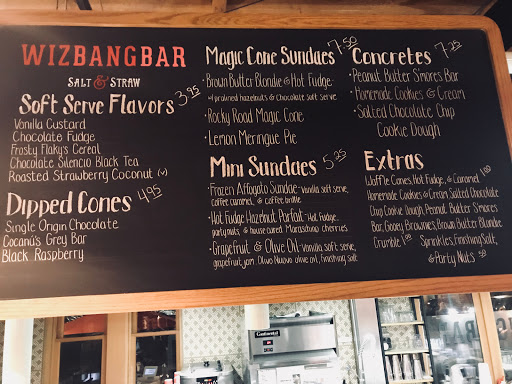 WIZBANGBAR
SALT & STRAW
Soft Serve Flavors 3.95
Vanilla Custard
Chocolate Fudge
Frosty Flaky's Cereal
Chocolate Silencio Black Tea
Roasted Strawberry Coconut (v)
Dipped Cones 4.95
Single Origin Chocolate
Cocanú's Grey Bar
Black Raspberry
Magic Cone Sundaes 7.50
· Brown Butter Blondie & Hot Fudge
w/ pralined hazelnuts & Chocolate Soft Serve
· Rocky Road Magic Cone
· Lemon Meringue Pie
Mini Sundaes 5.25
· Frozen Affogato Sundae- Vanilla soft serve,
coffee caramel, & coffee brittle
· Hot Fudge Hazelnut Parfait- Hot fudge,
party nuts & house cured Maraschino cherries
· Grapefruit & Olive Oil- Vanilla soft serve,
grapefruit jam, Olivo Nuovo olive oil, finishing salt
Concretes 7.25
· Peanut Butter S'mores Bar
· Homemade Cookies & Cream
· Salted Chocolate Chip
Cookie Dough
Extras
Waffle Cones, Hot Fudge, & Caramel 1.00
Homemade Cookies & Cream, Salted Chocolate
Chip Cookie Dough, Peanut Butter S'mores
Bar, Gooey Brownies, Brown Butter Blondie
Crumble Sprinkles, Finishing Salt,
& Party Nuts .50